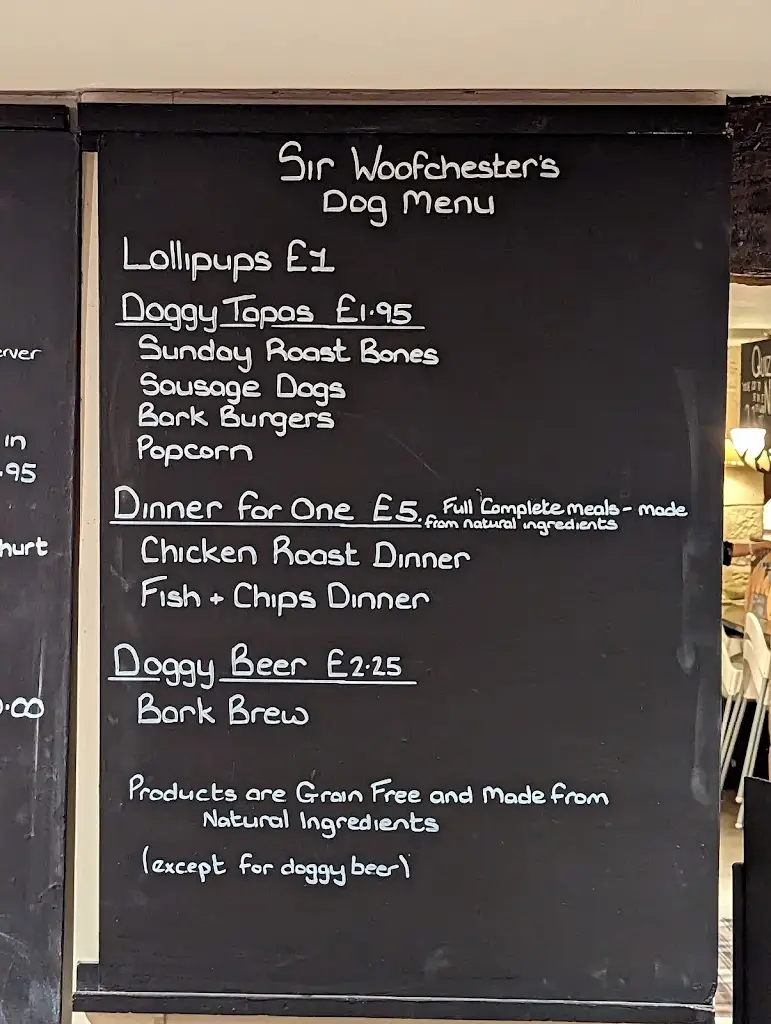 Sir Woofchester's
Dog Menu
Lollipups £1
Doggy Tapas £1.95
Sunday Roast Bones
Sausage Dogs
Bark Burgers
Popcorn
Dinner for One £5. Full Complete meals - made
from natural ingredients
Chicken Roast Dinner
Fish + Chips Dinner
Doggy Beer £2.25
Bark Brew
Products are Grain Free and Made from
Natural Ingredients
(except for doggy beer)
in
.95
.00